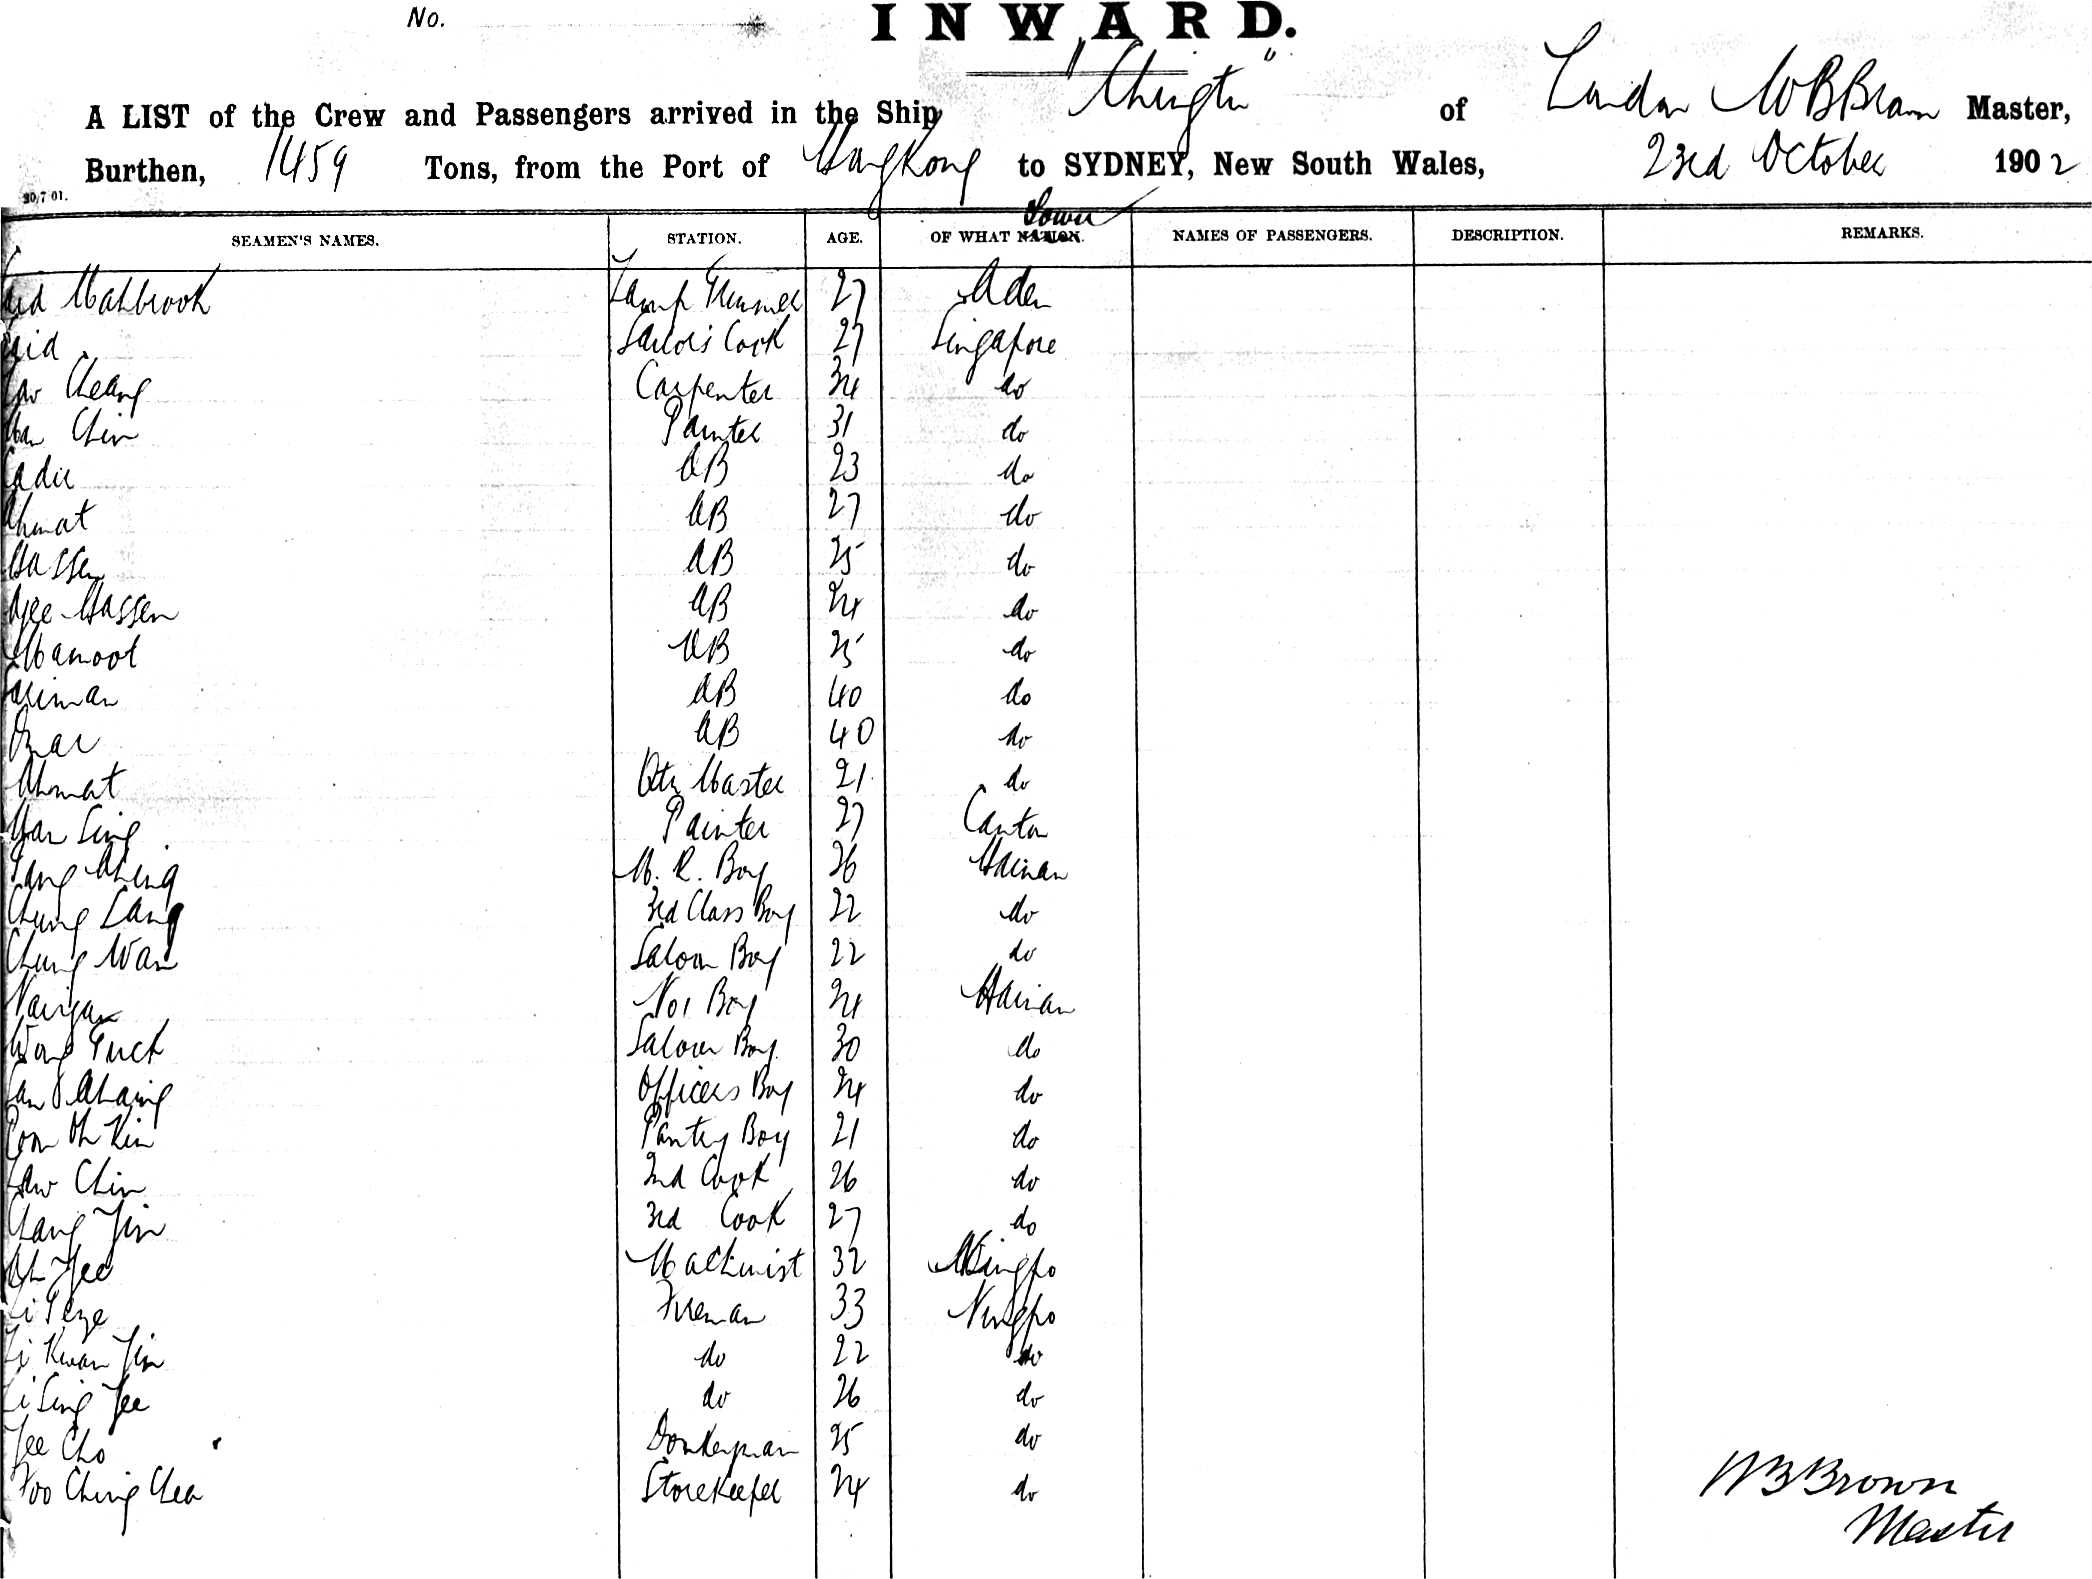 No.
INWARD.
A LIST of the Crew and Passengers arrived in the Ship "Chingtu" of London WB Brown Master,
Burthen, 1459 Tons, from the Port of HongKong to SYDNEY, New South Wales, 23rd October 1902
20/7 01.
Town
SEAMEN'S NAMES. STATION. AGE. OF WHAT NATION. NAMES OF PASSENGERS. DESCRIPTION. REMARKS.
Mahbrook Lamp Trimmer 27 Aden
Sailors Cook 27 Singapore
Cheang Carpenter 34 do
Chin Painter 31 do
AB 23 do
Ahmat AB 27 do
Hassen AB 25 do
Hassen AB 24 do
Mamoot AB 25 do
AB 40 do
Omar AB 40 do
Ahmat Qtr Master 21 do
Sing Painter 27 Canton
M. R. Boy 26 Hainan
Chung Lang 3rd Class Boy 22 do
Chung Wan Saloon Boy 22 do
No 1 Boy 24 Hainan
Wong Tuck Saloon Boy 30 do
Officers Boy 24 do
Ah Kin Pantry Boy 21 do
Law Chin 2nd Cook 26 do
Chang Yin 3rd Cook 27 do
Ah Yee Machinist 32 Ningpo
Fireman 33 Ningpo
Li Kwan Yin do 22 do
Li Sing Yee do 26 do
Yee Cho Donkeyman 25 do
Foo Ching Chea Storekeeper 24 do
WB Brown
Master